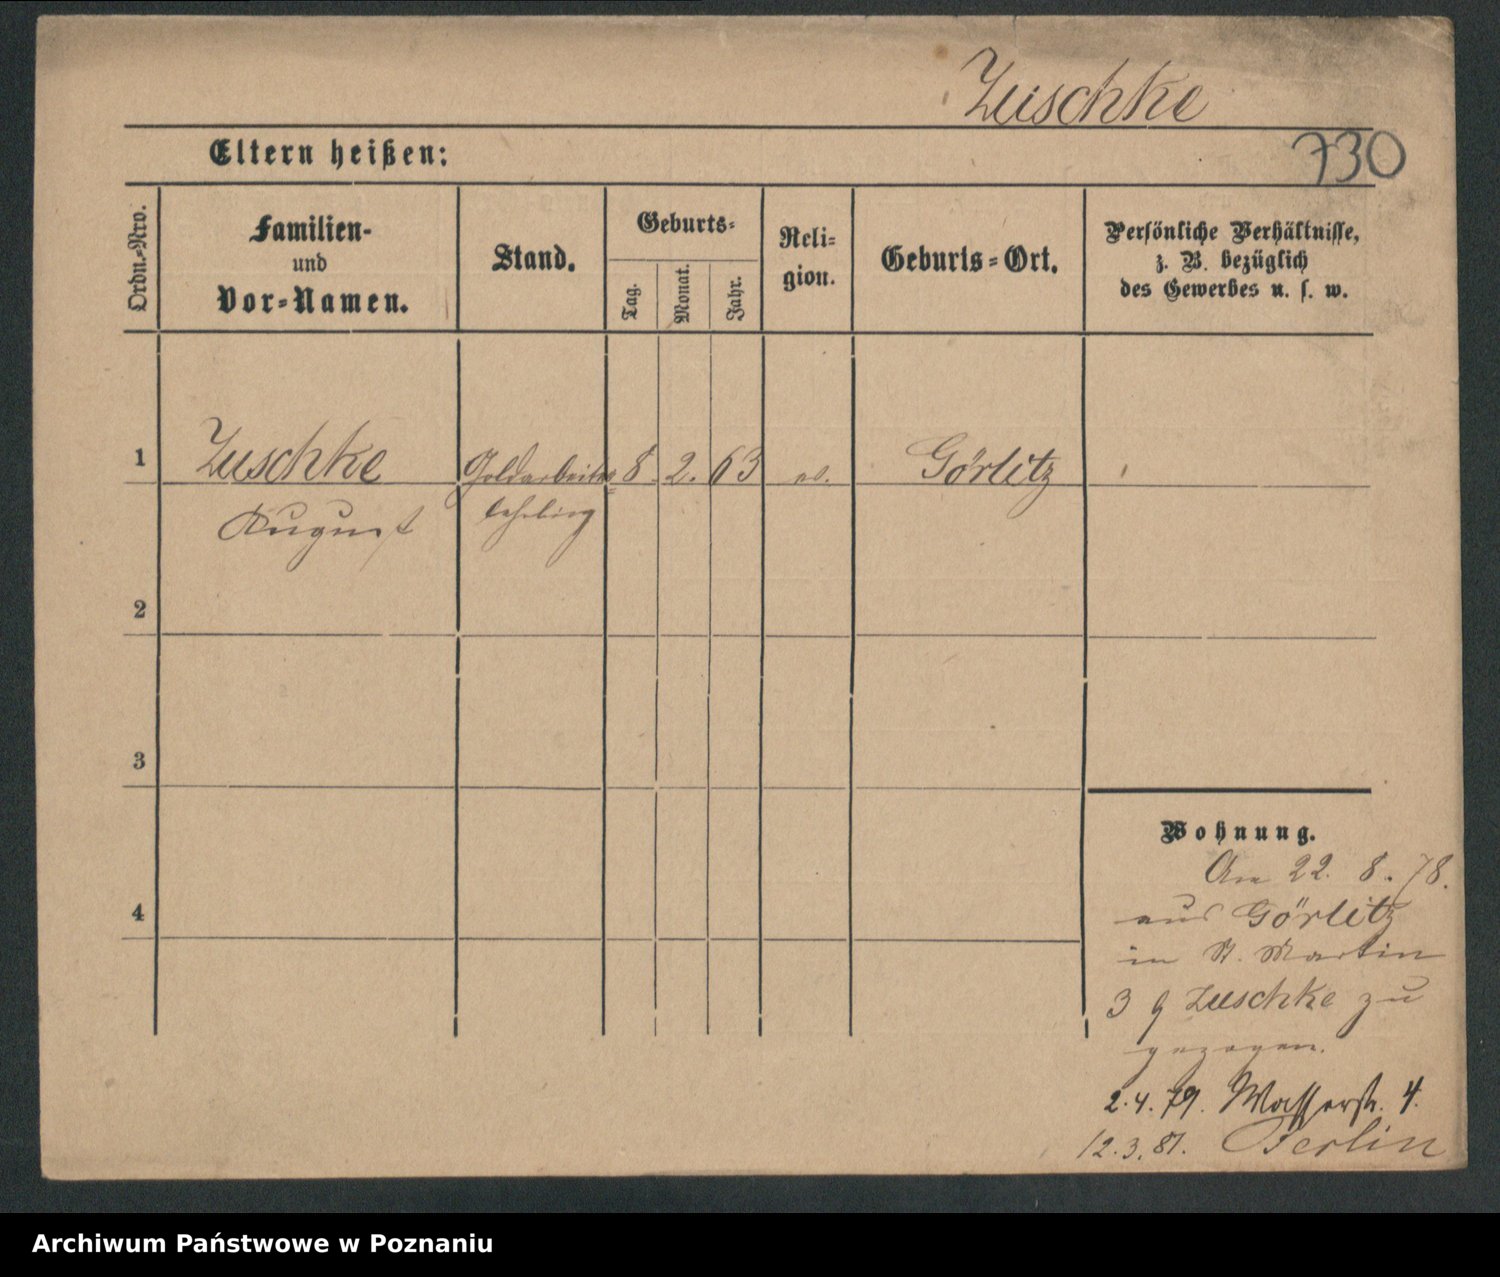 Zuschke
730
Eltern heißen:
Ordn.-Nro.
Familien-
und
Vor-Namen.
Stand.
Geburts-
Tag.
Monat.
Jahr.
Reli-
gion.
Geburts-Ort.
Persönliche Verhältnisse,
z. B. bezüglich
des Gewerbes u. s. w.
1 Zuschke Goldarbeiter= 8 2. 63 ev. Görlitz
August lehrling
2
3
4
Wohnung.
Am 22. 8. 78.
aus Görlitz
in St. Martin
3 Zuschke zu
gezogen.
2.4.79. Wasserstr. 4.
12.3.81. Berlin
Archiwum Państwowe w Poznaniu